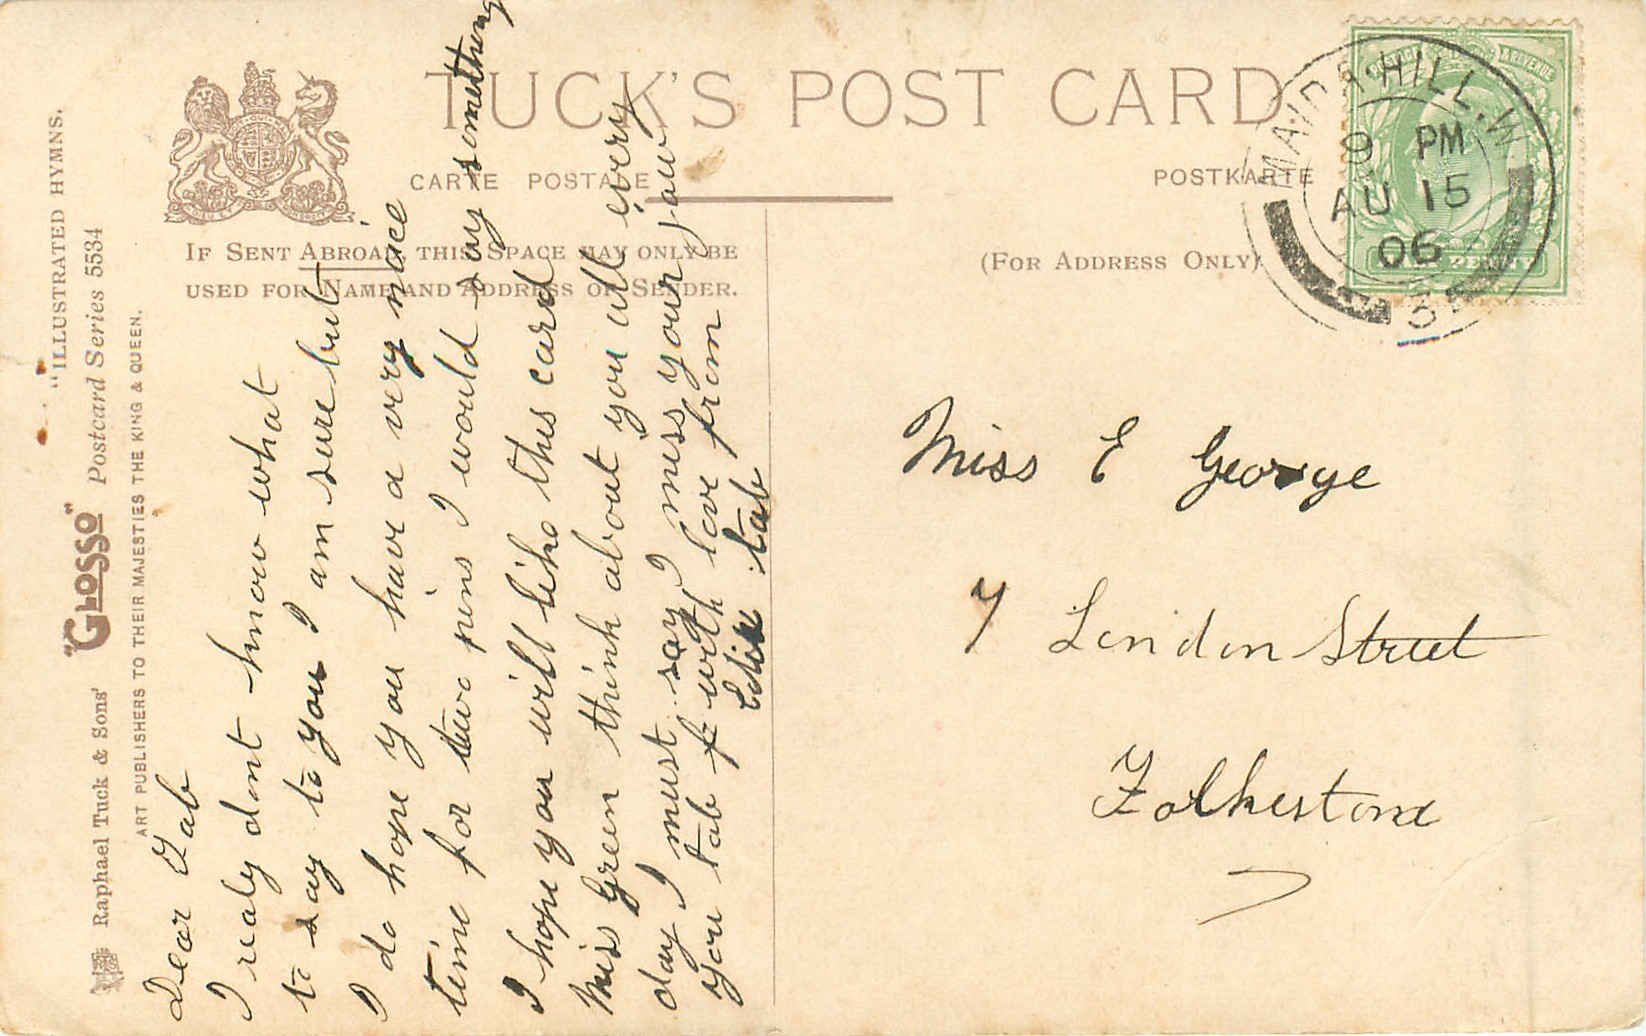 "ILLUSTRATED HYMNS.
Raphael Tuck & Sons' "GLOSSO" Postcard Series 5534
ART PUBLISHERS TO THEIR MAJESTIES THE KING & QUEEN.
TUCK'S POST CARD
CARTE POSTALE
POSTKARTE
IF SENT ABROAD, THIS SPACE MAY ONLY BE
USED FOR NAME AND ADDRESS OF SENDER.
(FOR ADDRESS ONLY)
Dear Tab
I realy dont know what
to say to you I am sure but
I do hope you have a very nice
time for two pins I would say something
I hope you will like this card
Miss Green think about you all every
day I must say I miss your jaw
you tab f with love from
Edie tab
MAIDA HILL. W
9 PM
AU 15
06
PENNY
& REVENUE
Miss E George
7 London Street
Folkestone